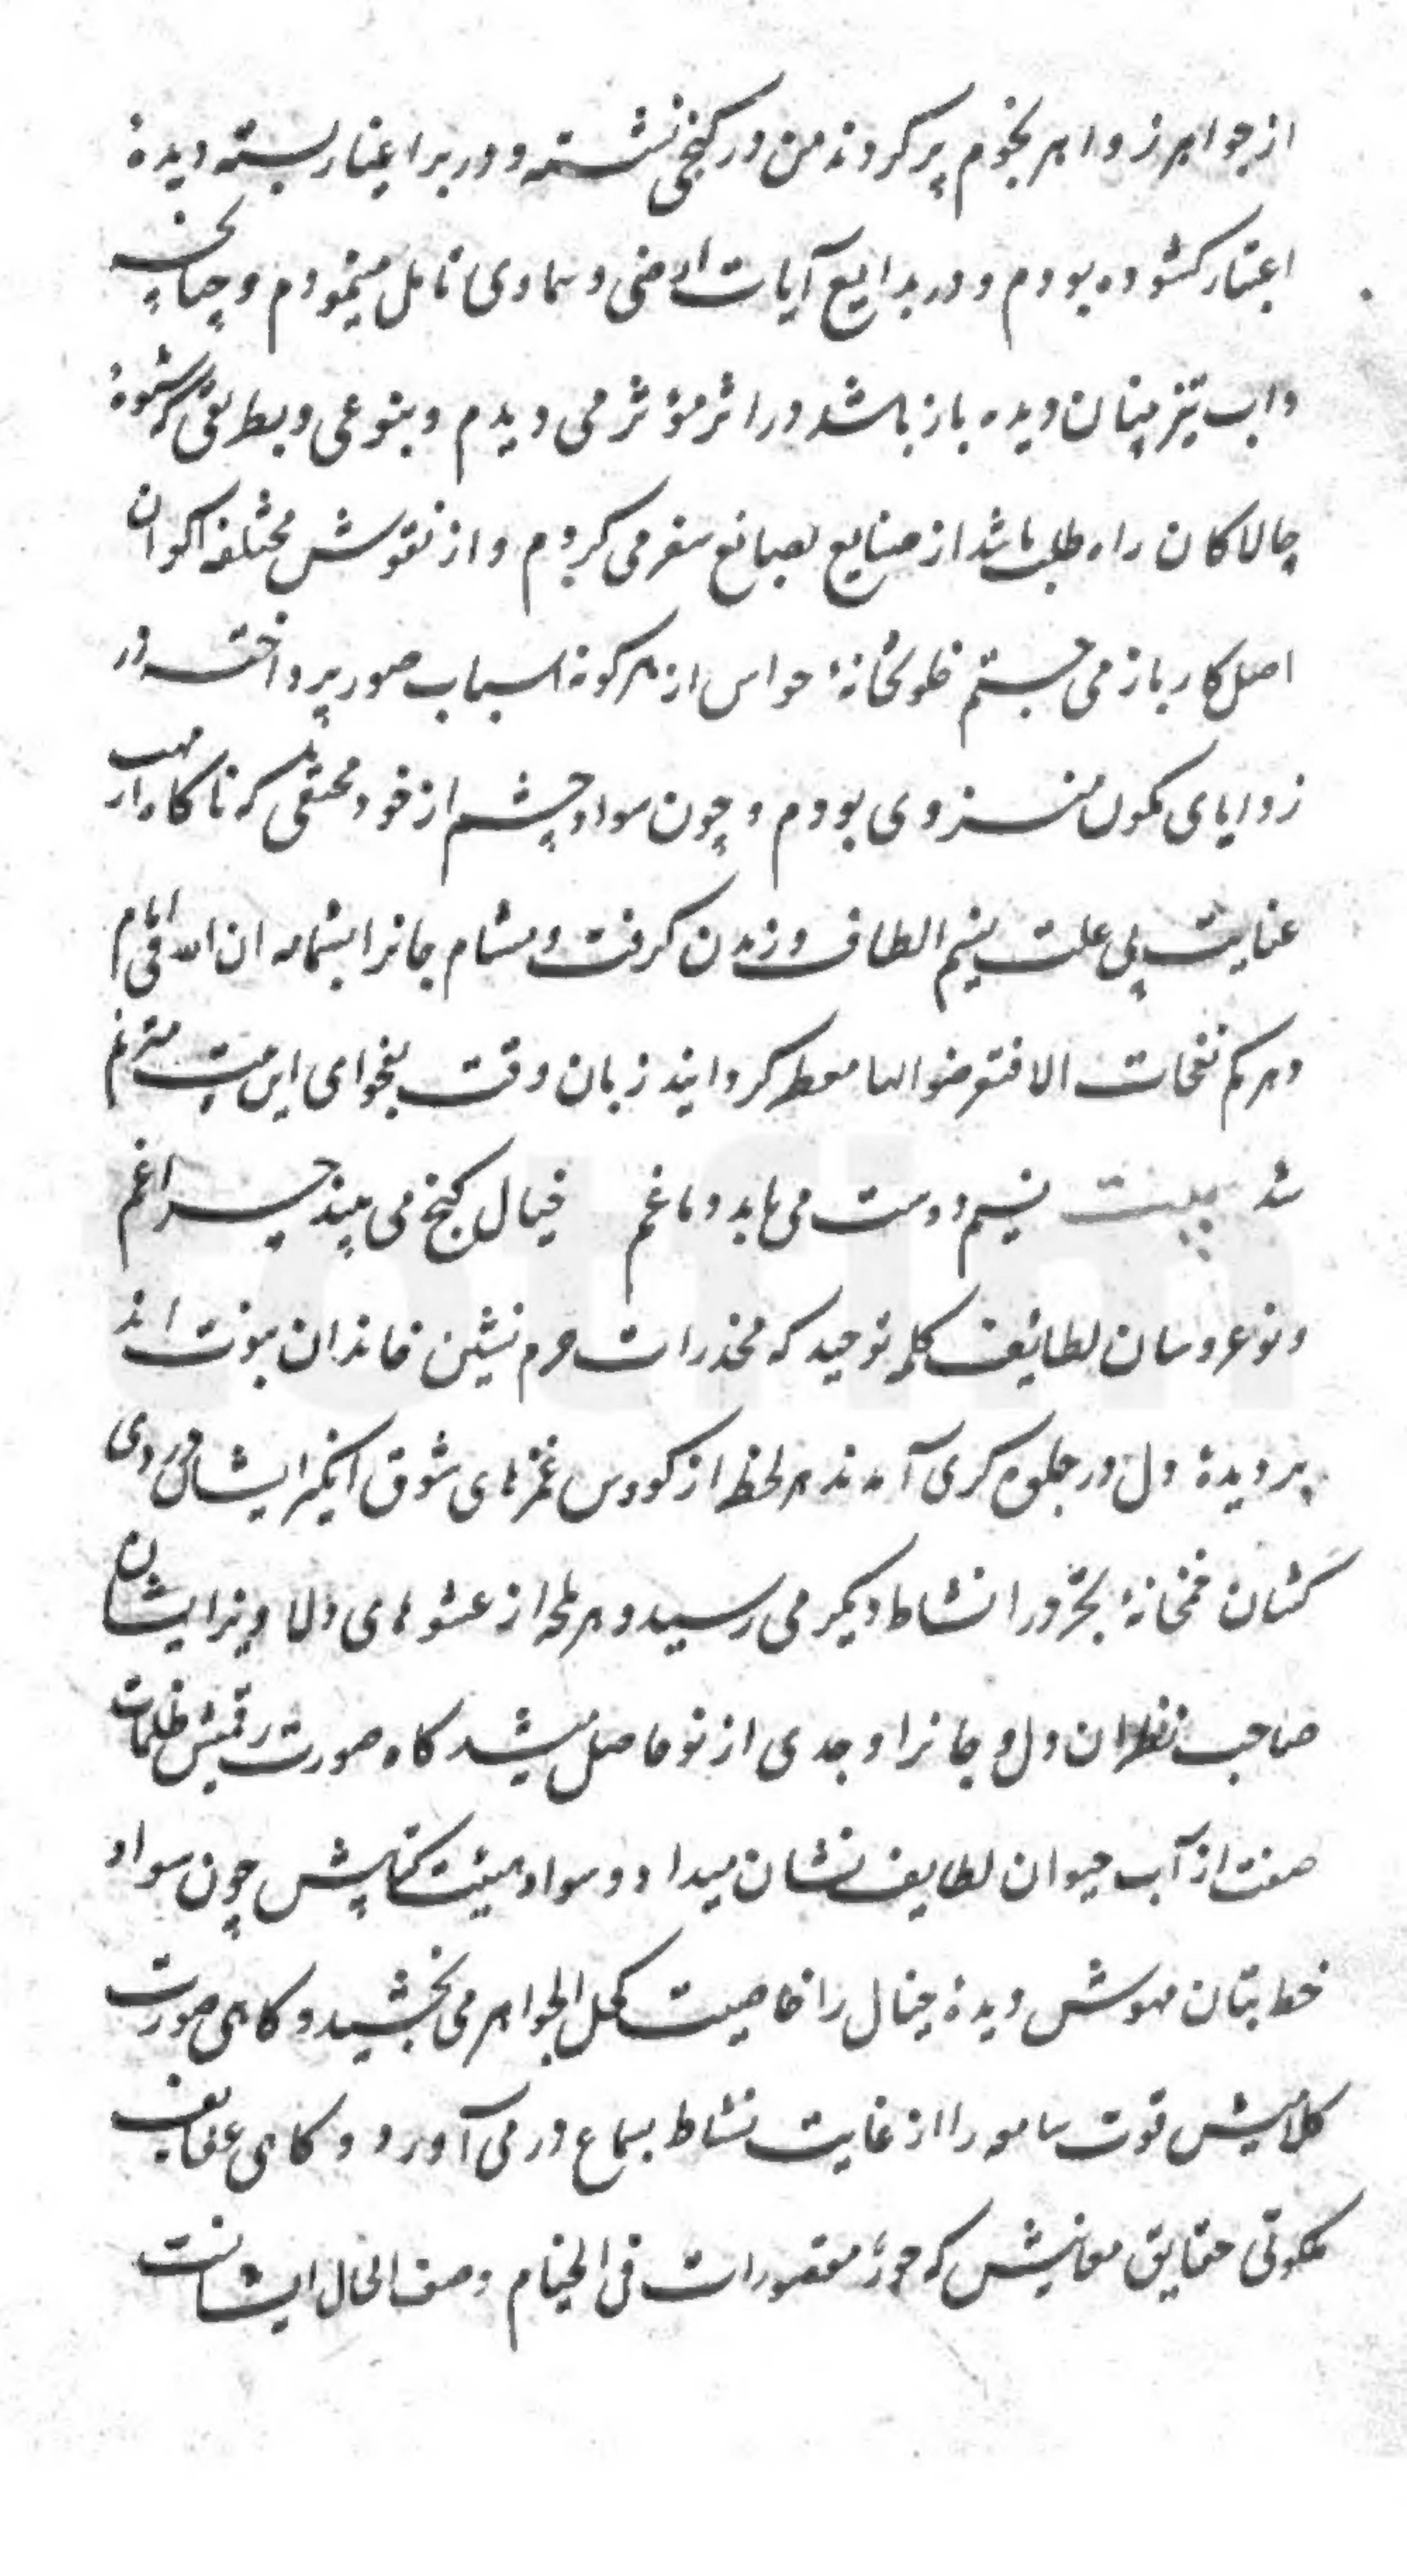 از جواهر زواهر نجوم پر کردند من در کنجی نشسته و در بر اغیار بسته دیدهٔ
اعتبار کشوده بودم و در بدایع آیات ارضی و سماوی تامل مینمودم و چنانچه
داب تیزبینان دیده باز باشد در اثر مؤثر می دیدم و بنوعی و بطریقی که شیوهٔ
چالاکان راه طلب باشد از صنایع بصانع سفر می کردم و از نقوش مختلفه اکوان
اصل کار باز می جستم خلوتخانهٔ حواس از هر کونه اسباب صور پرداخته در
زوایای سکون منزوی بودم و چون سواد چشم از خود مختفی که ناکاه از مهب
عنایت بی علت نسیم الطاف وزیدن کرفت و مشام جانرا بشمامه ان لله فی ایام
دهرکم نفحات الا فتعرضوا لها معطر کردانید زبان وقت بفحوای این بیت مترنم
شد بیت نسیم دوست می یابد دماغم خیال کنج می بیند چراغم
و نوعروسان لطائف کلمه توحید که مخدرات حرم نشین خاندان نبوت اند
بر دیدهٔ دل در جلوه کری آمدند هر لحظه از کووس غمزهای شوق انکیز ایشان دردی
کشان خمخانهٔ تجرد را نشاط دیکر می رسید و هر لمحه از عشوهای دلاویز ایشان
صاحب نظران دل و جانرا وجدی از نو حاصل میشد کاه صورت رقمیش ظلمات
صفت از آب حیوان لطایف نشان میداد و سواد هیئت کتابیش چون سواد
خط بتان مهوش دیدهٔ خیال را خاصیت کحل الجواهر می بخشید و کاهی صورت
کلامیش قوت سامعه را از غایت نشاط بسماع در می آورد و کاهی عفایف
ملکوتی حقایق معانیش که حور مقصورات فی الخیام وصف الحال ایشانست